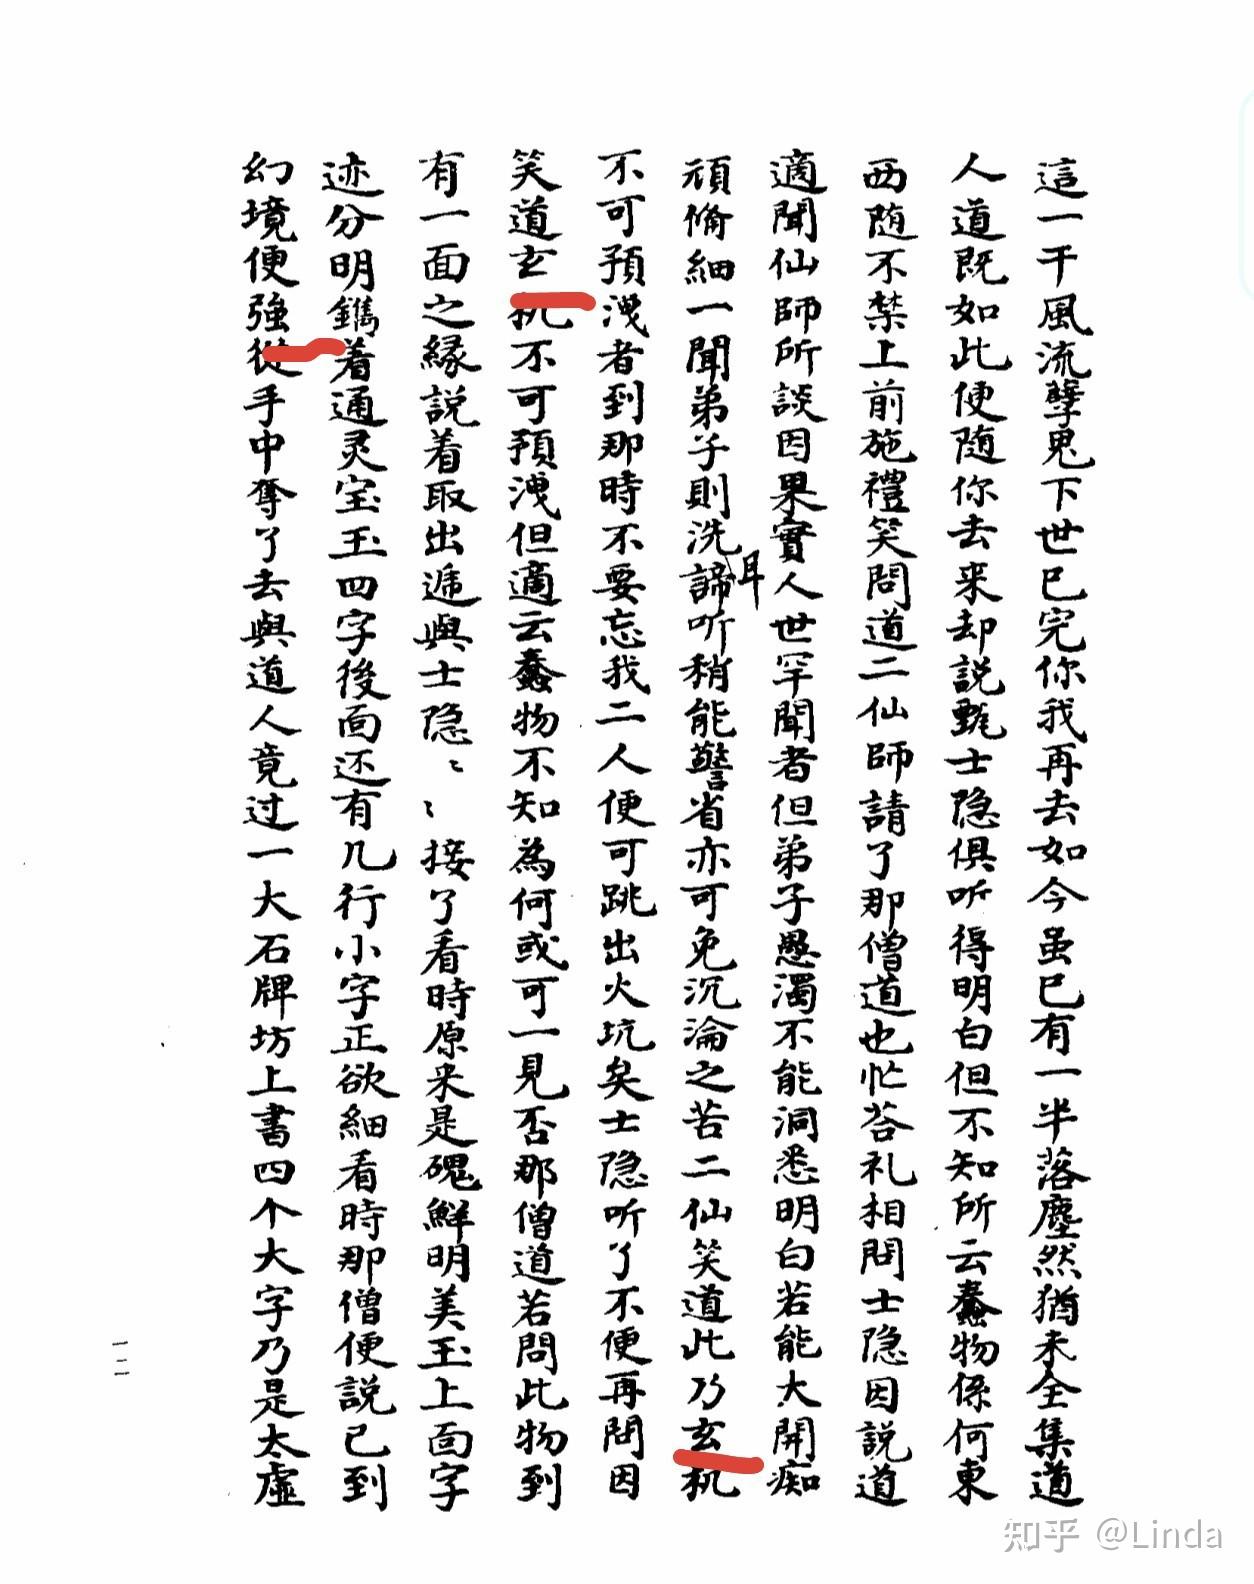 這一干風流孽鬼下世已完你我再去如今虽已有一半落塵然猶未全集道
人道既如此便随你去来却説甄士隐俱听得明白但不知所云蠢物係何東
西随不禁上前施禮笑問道二仙師請了那僧道也忙荅礼相問士隐因説道
適聞仙師所談因果實人世罕聞者但弟子愚濁不能洞悉明白若能大開痴
頑俻細一聞弟子則洗耳諦听稍能警省亦可免沉淪之苦二仙笑道此乃玄机
不可預洩者到那時不要忘我二人便可跳出火坑矣士隐听了不便再問因
笑道玄机不可預洩但適云蠢物不知為何或可一見否那僧道若問此物到
有一面之緣説着取出遞與士隐〻〻接了看時原来是磈鮮明美玉上面字
迹分明鐫着通灵宝玉四字後面还有几行小字正欲細看時那僧便説已到
幻境便強從手中奪了去與道人竟过一大石牌坊上書四个大字乃是太虛
一二
知乎 @Linda